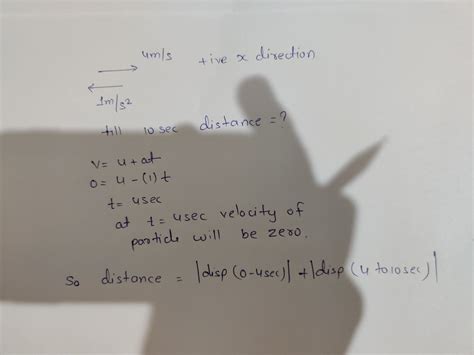 4m/s +ive x direction
1m/s²
till 10 sec distance = ?
V = u + at
0 = 4 - (1) t
t = 4sec
at t = 4sec velocity of
particle will be zero.
So distance = |disp (0-4sec)| + |disp (4 to 10 sec)|